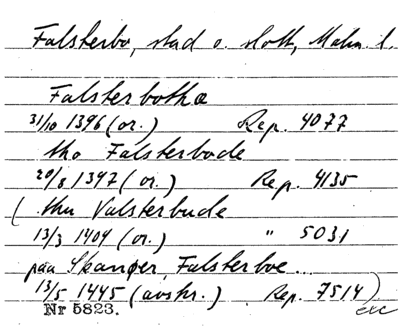 Falsterbo, stad o. slott, Malm. l.
Falsterbothæ
31/10 1396 (or.) Rep. 4077
tho Falsterbode
20/8 1397 (or.) Rep. 4135
( thu Valsterbude
13/3 1404 (or.) " 5031
paa Skanøer, Falsterboe ...
13/5 1445 (avskr.) Rep. 7514)
Nr 5823. etc